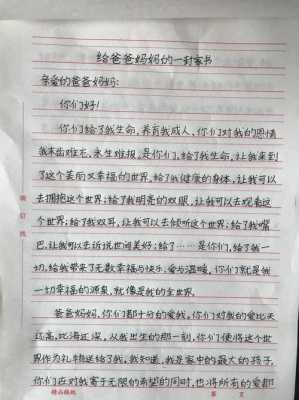 给爸爸妈妈的一封家书
亲爱的爸爸妈妈:
你们好!
你们给了我生命,养育我成人,你们对我的恩情
我末齿难忘,永生难报,是你们,给了我生命,让我来到
了这个美丽又幸福的世界,给了我健康的身体,让我可以
去拥抱这个世界;给了我明亮的双眼,让我可以去观看这
个世界;给了我双耳,让我可以去倾听这个世界;给了我嘴
巴,让我可以去诉说世间美好;给了……是你们,给了我一
切,给我带来了无数幸福与快乐,爱与温暖,你们就是我
一切幸福的源泉,就像是我的全世界。
爸爸妈妈,你们都十分的爱我,你们对我的爱比天
还高,比海还深,从我出生的那一刻,你们便将这个世
界作为礼物送给了我,我知道,我是家中的最大的孩子,
你们在对我寄于无限的希望的同时,也将所有的爱都